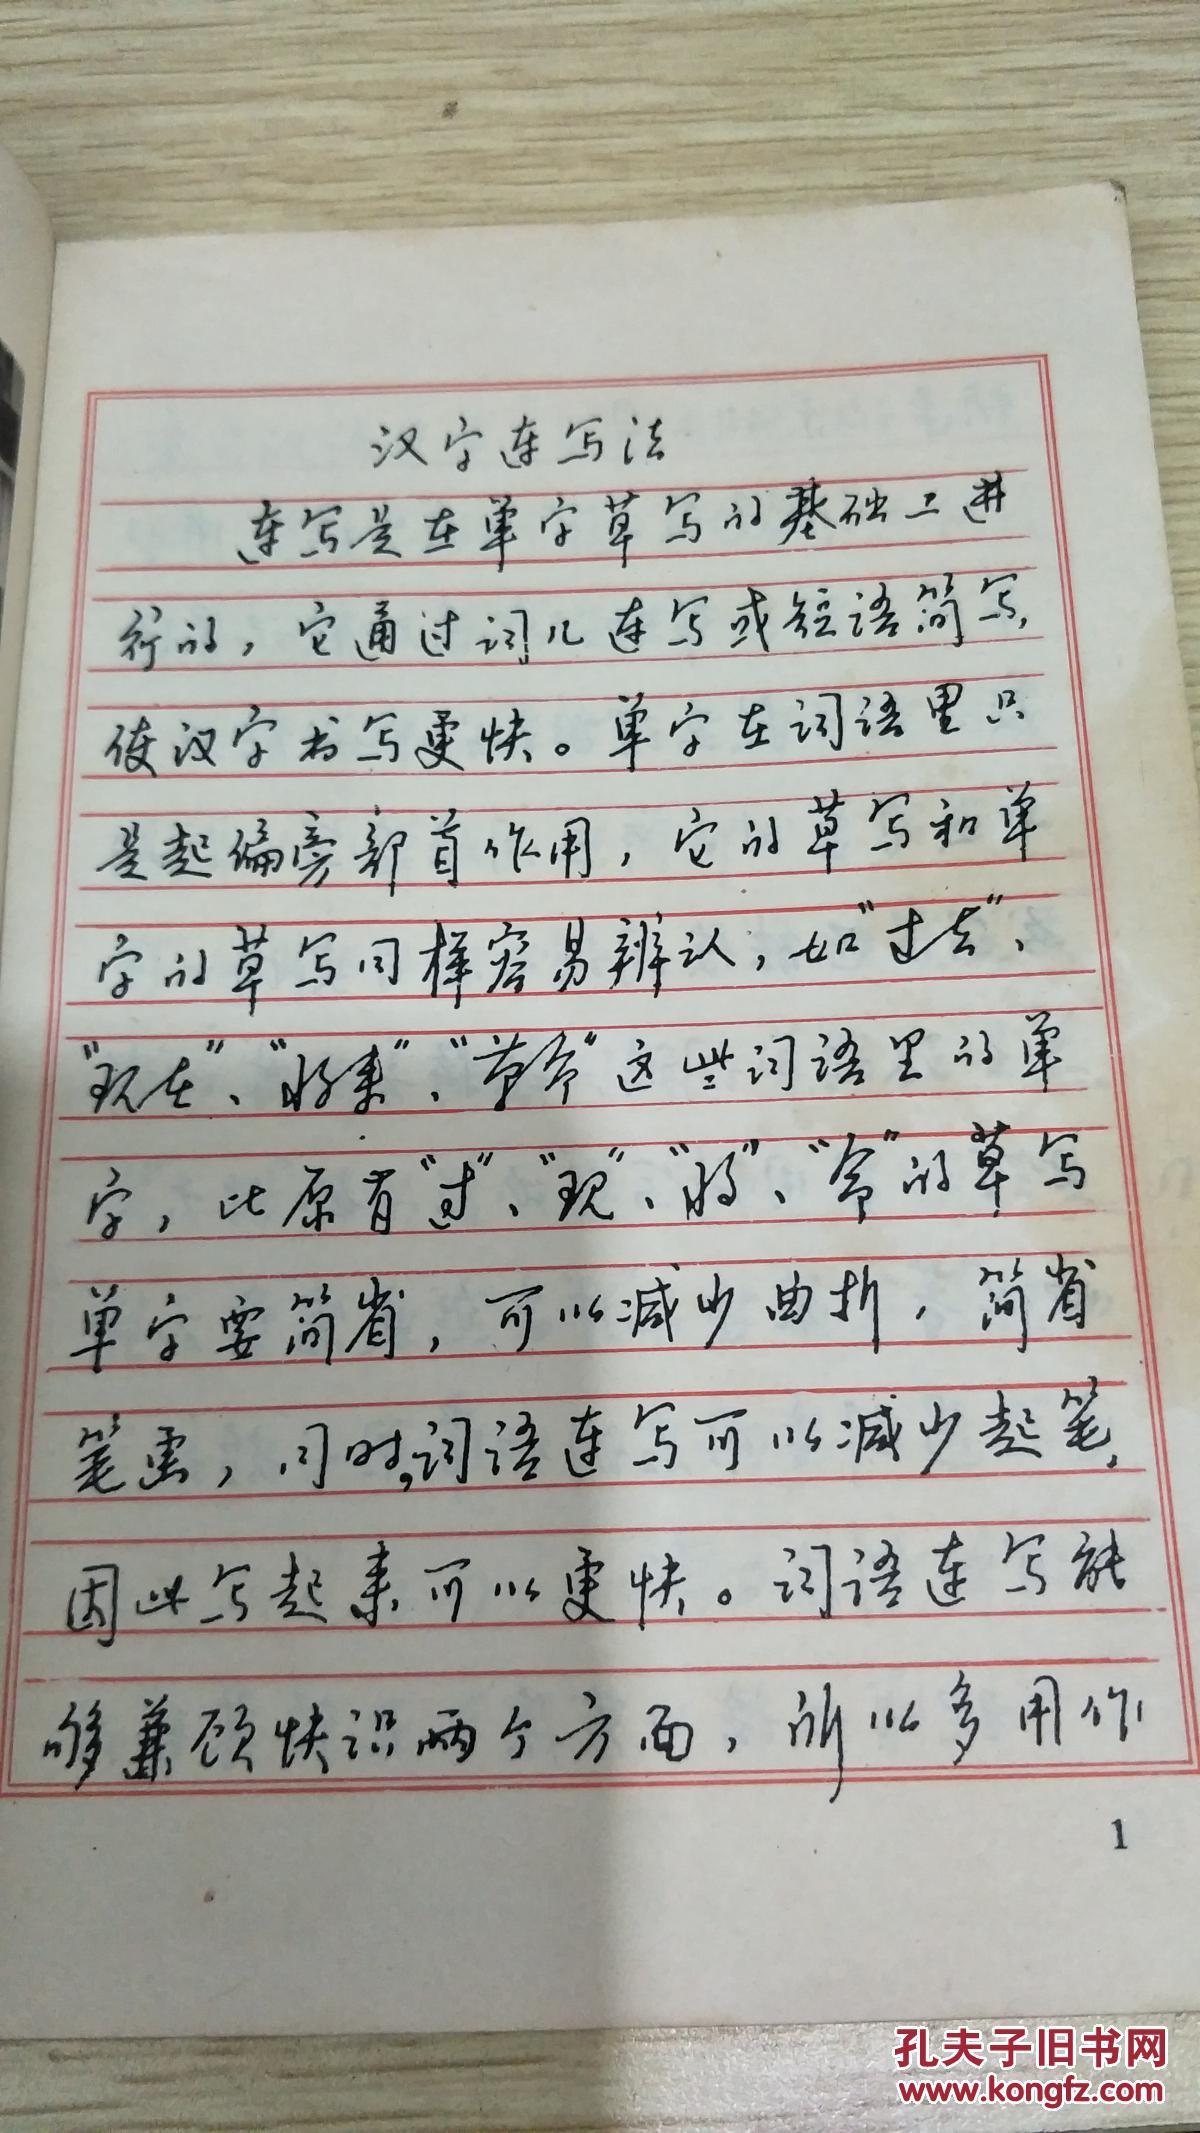 汉字连写法
连写是在单字草写的基础上进
行的，它通过词儿连写或短语简写，
使汉字书写更快。单字在词语里只
是起偏旁部首作用，它的草写和单
字的草写同样容易辨认，如“过去”、
“现在”、“将来”、“爷爷”这些词语里的单
字，比原有“过”、“现”、“将”、“爷”的草写
单字要简省，可以减少曲折，简省
笔画，同时，词语连写可以减少起笔，
因此写起来可以更快。词语连写能
够兼顾快识两个方面，所以多用作
1
孔夫子旧书网
www.kongfz.com